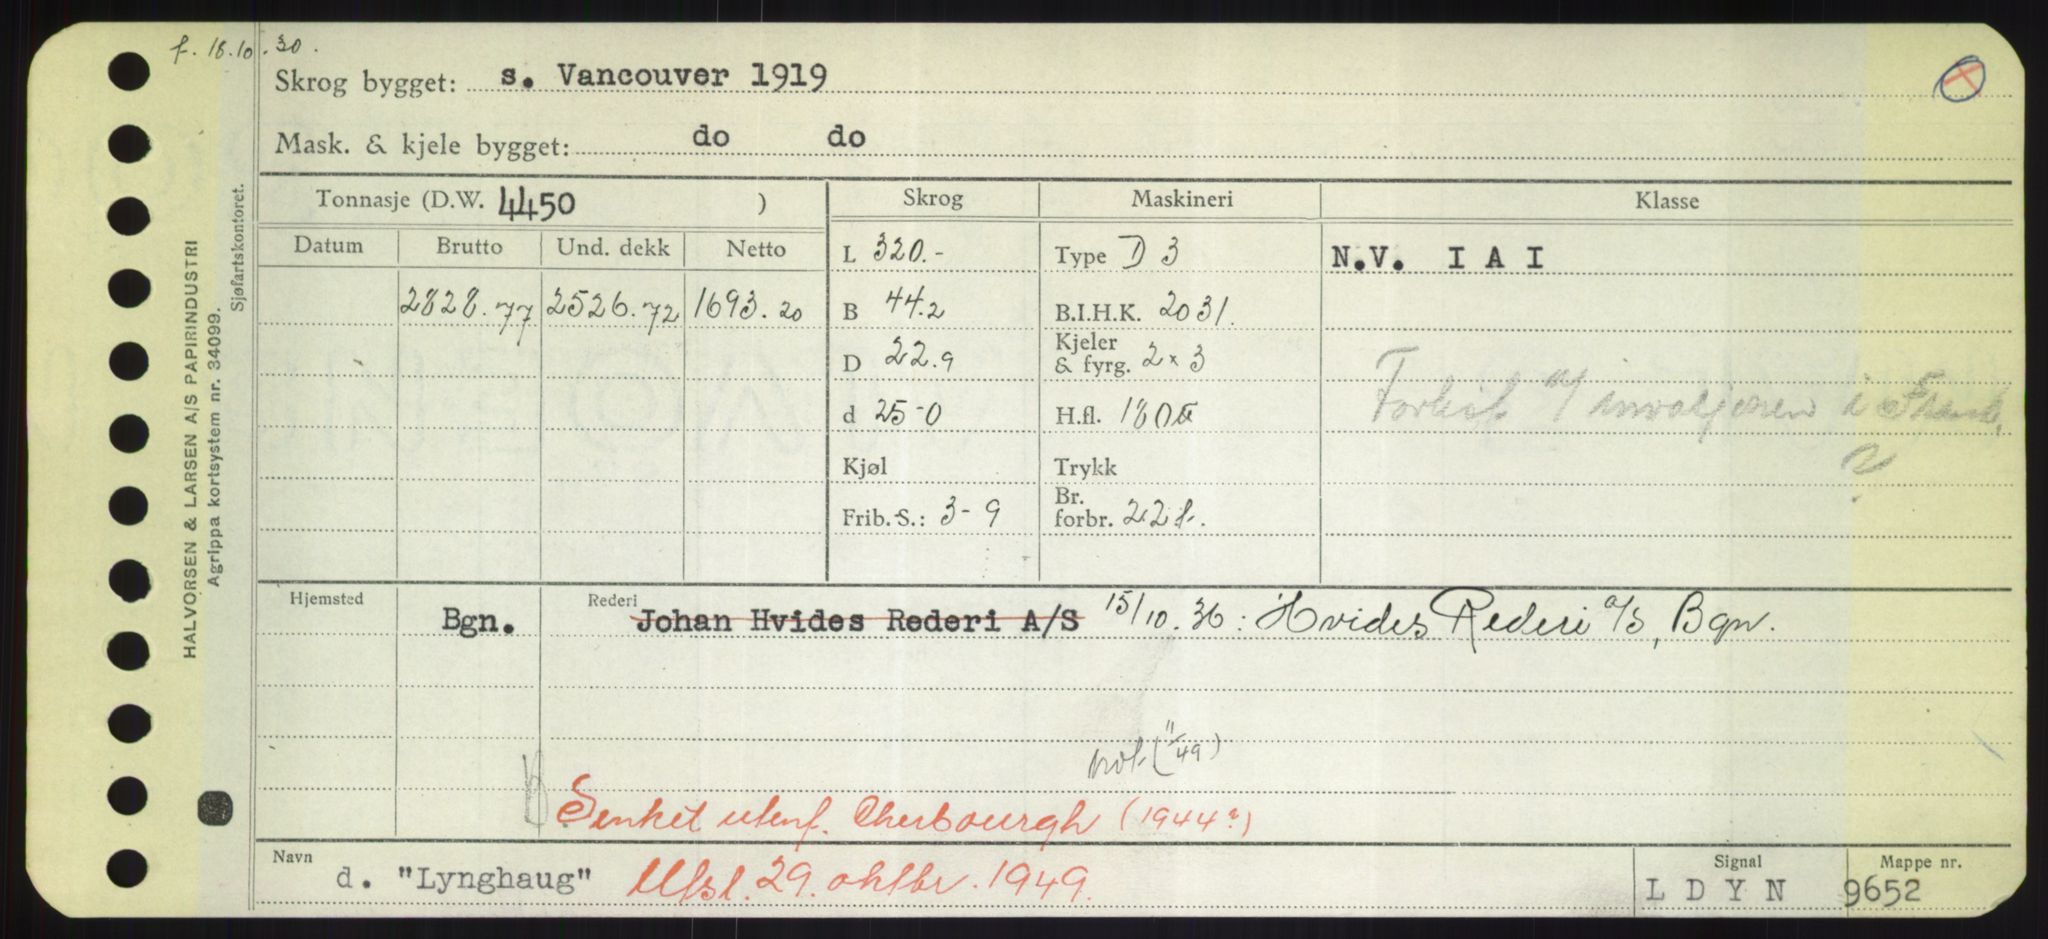 f. 18.10.30.
Skrog bygget: s. Vancouver 1919
Mask. & kjele bygget: do do
Tonnasje (D.W. 4450 )
Skrog
Maskineri
Klasse
Datum
Brutto
Und. dekk
Netto
L 320.-
Type D 3
N.V. I A I
2828.77
2526.72
1693.20
B 44.2
B.I.H.K. 2031.
D 22.9
Kjeler
& fyrg. 2 x 3
d 25-0
H.fl.
Forlist i Frank.
?
Kjøl
Trykk
Frib.-S.: 3-9
Br.
forbr. 22 t.
Hjemsted
Bgn.
Rederi
Johan Hvides Rederi A/S 15/10.36: Hvides Rederi a/s, Bgn.
not. (11/49)
Senket utenf. Cherbourgh (1944?)
Navn
d. "Lynghaug"
Utsl. 29. oktbr. 1949.
Signal
L D Y N
Mappe nr.
9652
HALVORSEN & LARSEN A/S PAPIRINDUSTRI
Agrippa kortsystem nr. 34099.
Sjøfartskontoret.